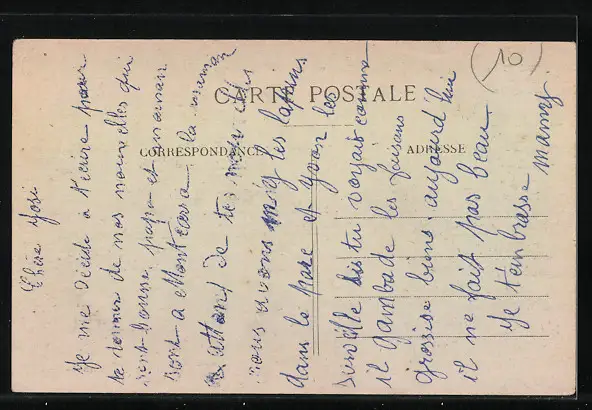 CARTE POSTALE
CORRESPONDANCE
ADRESSE
10
Chère Josi
Je me décide à t'écrire pour
te donner de nos nouvelles qui
sont bonne, papa et maman
sont a
attend de tes
nous avons mis les lapins
dans le parc et Yvan les
surveille si tu voyait comme
il gambade les faisans
grossise biens. aujourd'hui
il ne fait pas beau
Je t'embrasse mamy.